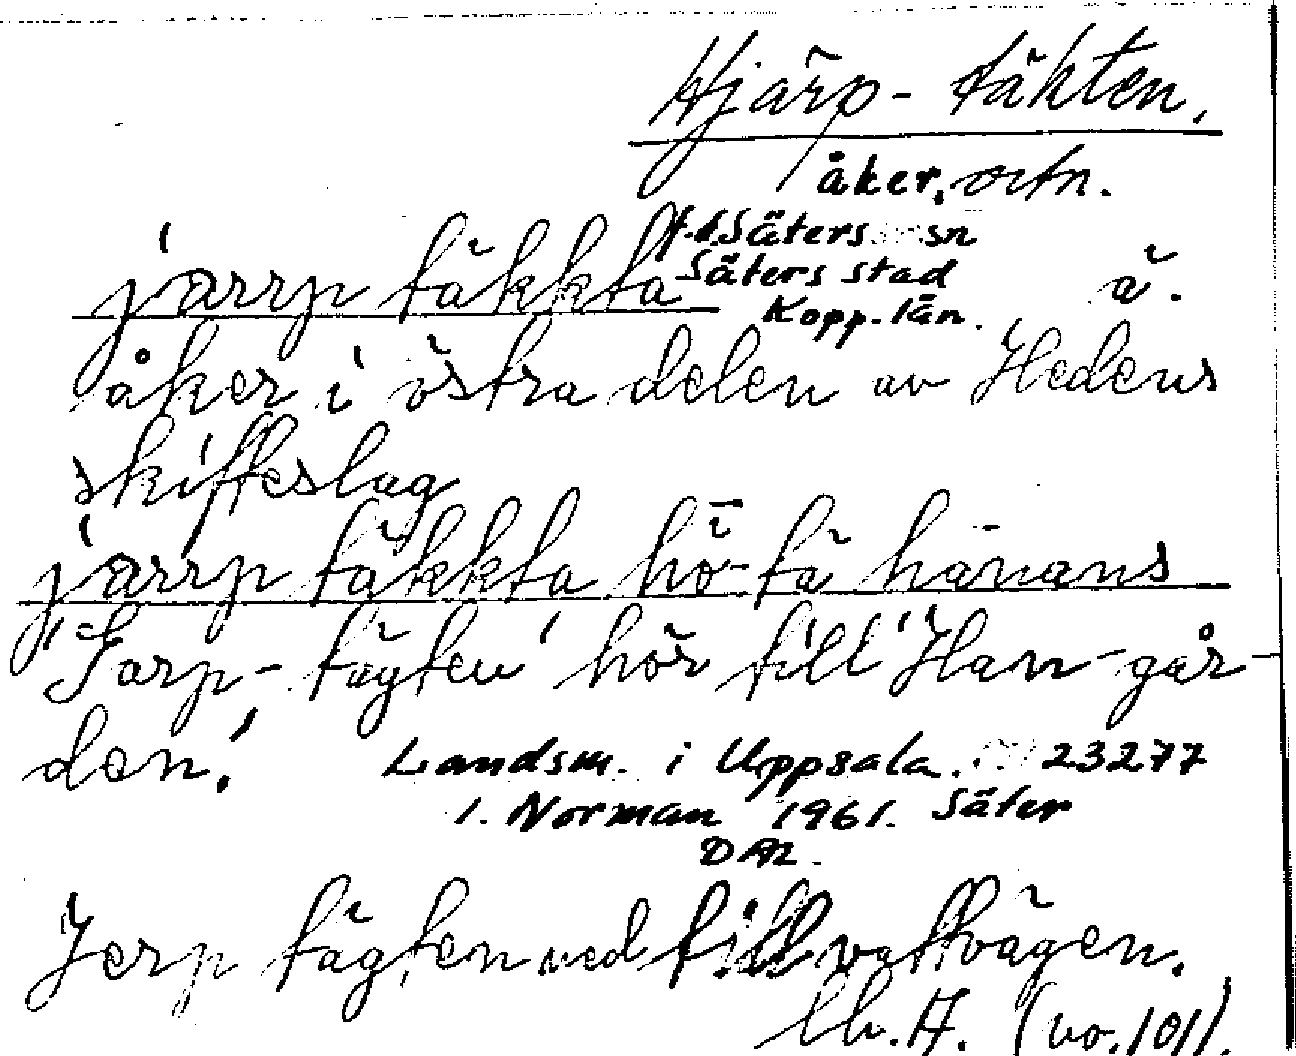 Hjärp-täkten.
åker, ortn.
f.d. Säters sn
Säters stad
Kopp. län.
jarrp täkkta ä.
åker i östra delen av Hedens
skifteslag
jarrp täkkta hö tä hanans
"Jarp-tägten" hör till "Han-går-
den."
Landsm. i Uppsala. 23277
I. Norman 1961. Säter
DAL.
Jerp tägten ved till vattvägen.
Lh. A. (no. 101).